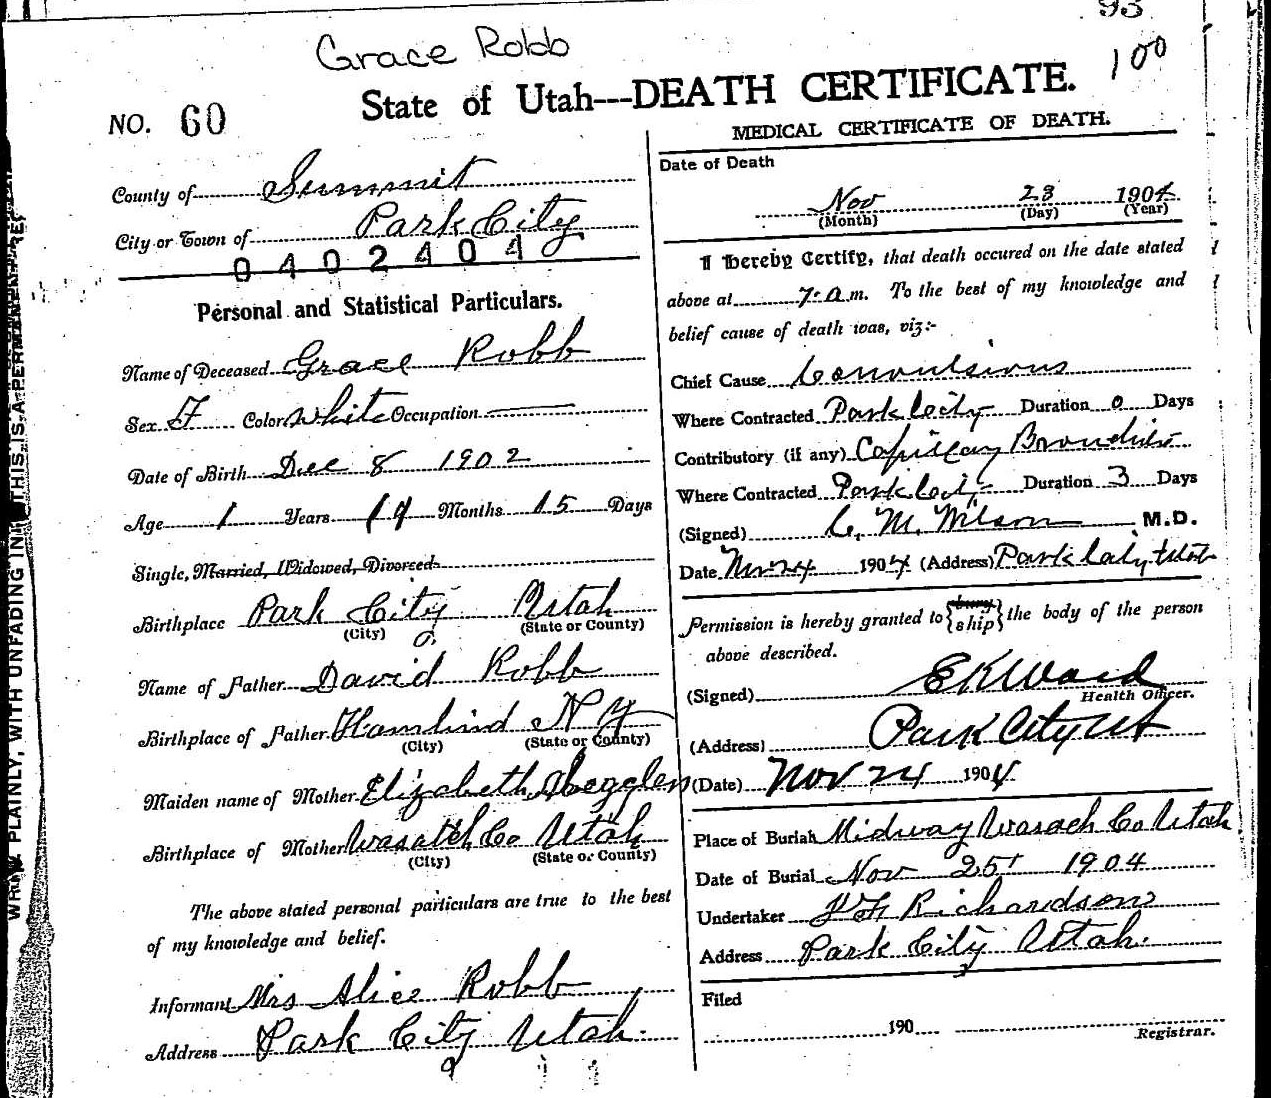 93
Grace Robb
100
NO. 60
State of Utah---DEATH CERTIFICATE.
County of Summit
City or Town of Park City
0402404
Personal and Statistical Particulars.
Name of Deceased Grace Robb
Sex F Color White Occupation
Date of Birth Dec 8 1902
Age 1 Years 11 Months 15 Days
Single, Married, Widowed, Divorced
Birthplace Park City Utah
(City) (State or County)
Name of Father David Robb
Birthplace of Father NY
(City) (State or County)
Maiden name of Mother Elizabeth
Birthplace of Mother Wasatch Co Utah
(City) (State or County)
The above stated personal particulars are true to the best
of my knowledge and belief.
Informant Mrs Alice Robb
Address Park City Utah.
MEDICAL CERTIFICATE OF DEATH.
Date of Death
Nov 23 1904
(Month) (Day) (Year)
I hereby Certify, that death occured on the date stated
above at 7. a.m. To the best of my knowledge and
belief cause of death was, viz:-
Chief Cause Convulsions
Where Contracted Park City Duration 0 Days
Contributory (if any) Capillary
Where Contracted Park City Duration 3 Days
(Signed) C. M. Wilson M.D.
Date Nov 24 1904 (Address) Park City Utah
Permission is hereby granted to {bury ship} the body of the person
above described.
(Signed) E K Ward
Health Officer.
(Address) Park City Ut
(Date) Nov 24 1904
Place of Burial Midway Wasach Co Utah
Date of Burial Nov 25 1904
Undertaker Richardson
Address Park City Utah.
Filed
190
Registrar.
PLAINLY, WITH UNFADING INK THIS IS A PERMANENT